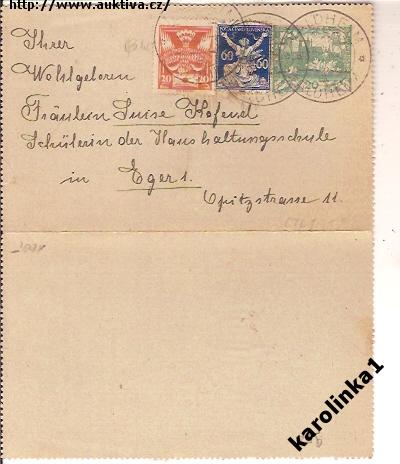 http://www.auktiva.cz/
Ihrer
Wohlgeboren
Fräulein Luise Hofend
Schülerin der Haushaltungsschule
in Eger 1.
Opitzstrasse 11.
20 20
POŠTA ČESKOSLOVENSKÁ
60 60
karolinka1